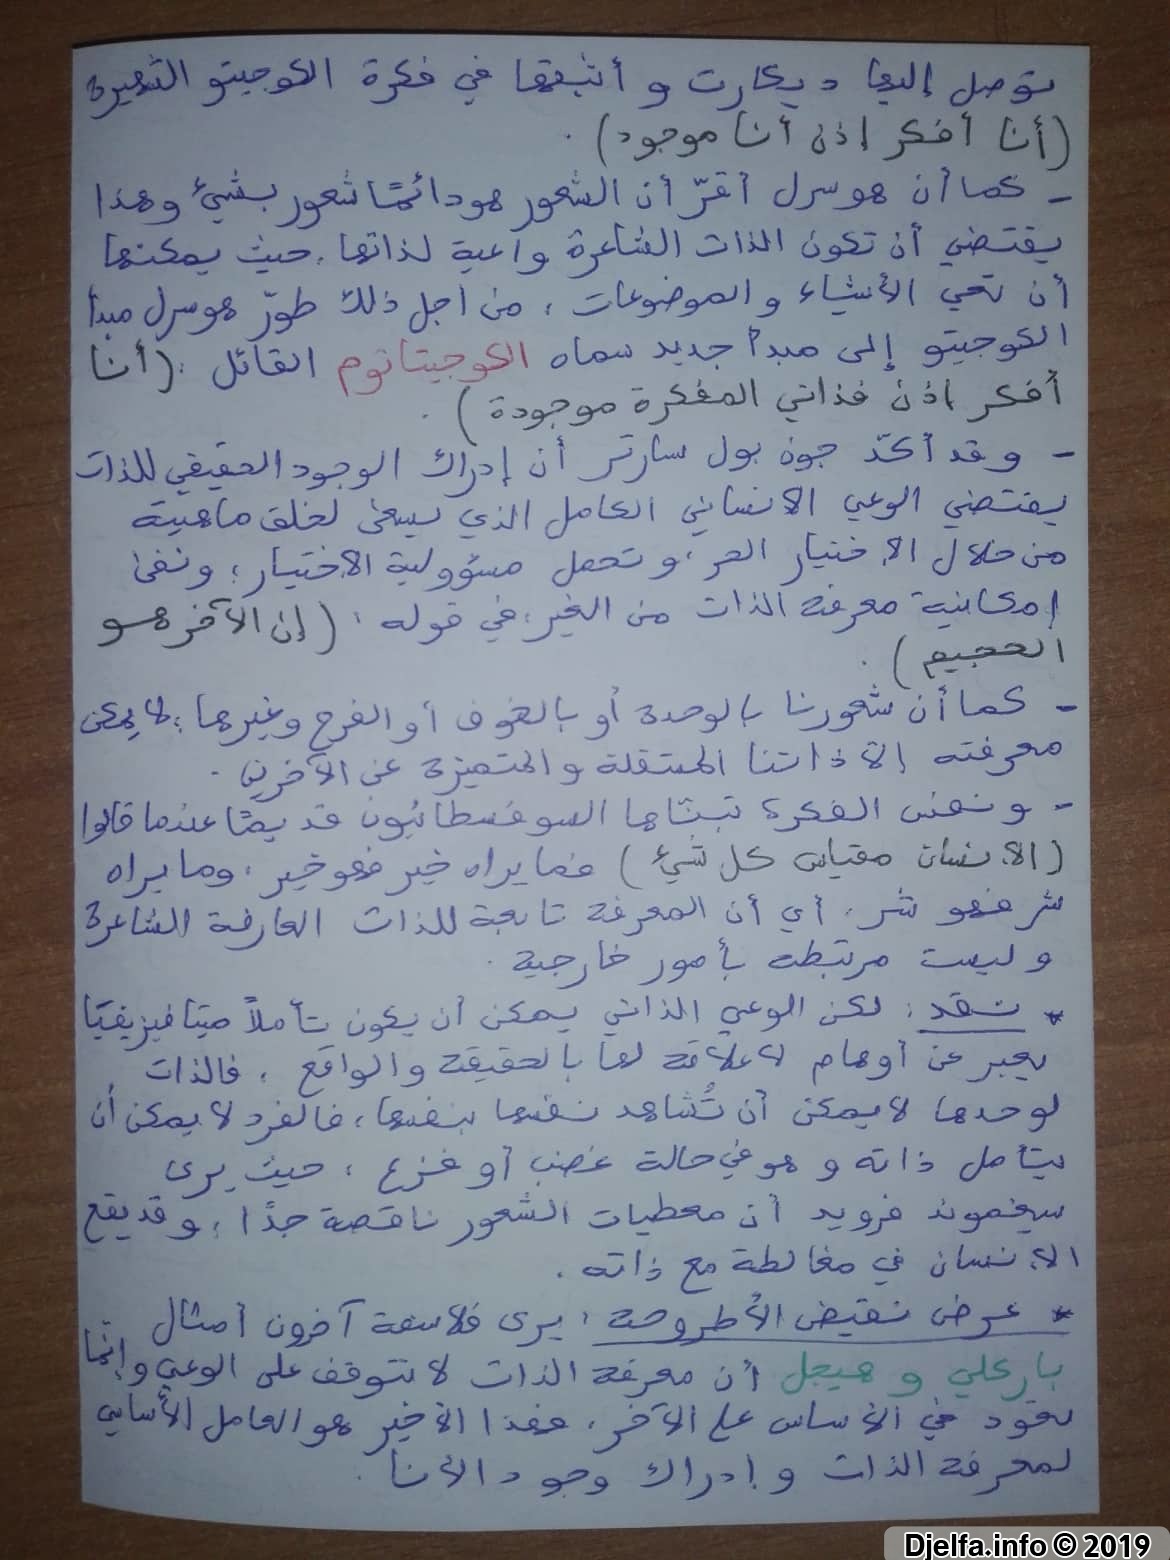 توصل إليها ديكارت و أثبتها في فكرة الكوجيتو الشهيرة
(أنا أفكر إذن أنا موجود) .
- كما أن هوسرل أقرّ أن الشعور هو دائمًا شعور بشيء وهذا
يقتضي أن تكون الذات الشاعرة واعية لذاتها، حيث يمكنها
أن تعي الأشياء والموضوعات ، من أجل ذلك طوّر هوسرل مبدأ
الكوجيتو إلى مبدأ جديد سماه الكوجيتاتوم القائل : (أنا
أفكر إذن فذاتي المفكرة موجودة) .
- وقد أكّد جون بول سارتر أن إدراك الوجود الحقيقي للذات
يقتضي الوعي الانساني الكامل الذي يسعى لخلق ماهيته
من خلال الاختيار الحر، وتحمل مسؤولية الاختيار ؛ ونفى
إمكانية معرفة الذات من الغير ؛ في قوله : (إن الآخر هو
الجحيم) .
- كما أن شعورنا بالوحدة أو بالخوف أو الفرح وغيرها ؛ لا يمكن
معرفته إلا ذاتنا المستقلة والمتميزة عن الآخرين .
- ونفس الفكرة تبناها السوفسطائيون قديمًا عندما قالوا
(الانسان مقياس كل شيء) فما يراه خير فهو خير ، وما يراه
شر فهو شر ، أي أن المعرفة تابعة للذات العارفة الشاعرة
وليست مرتبطة بأمور خارجية .
* نقد : لكن الوعي الذاتي يمكن أن يكون تأملاً ميتافيزيقيًا
يعبر عن أوهام لا علاقة لها بالحقيقة والواقع ، فالذات
لوحدها لا يمكن أن تُشاهد نفسها بنفسها ، فالفرد لا يمكن أن
يتأمل ذاته و هو في حالة غضب أو فزع ، حيث يرى
سيغموند فرويد أن معطيات الشعور ناقصة جدًا ؛ وقد يقع
الانسان في مغالطة مع ذاته .
* عرض نقيض الأطروحة : يرى فلاسفة آخرون أمثال
باركلي و هيجل أن معرفة الذات لا تتوقف على الوعي وإنما
تعود في الأساس على الآخر ، فهذا الأخير هو العامل الأساسي
لمعرفة الذات و إدراك وجود الأنا .
Djelfa.info © 2019